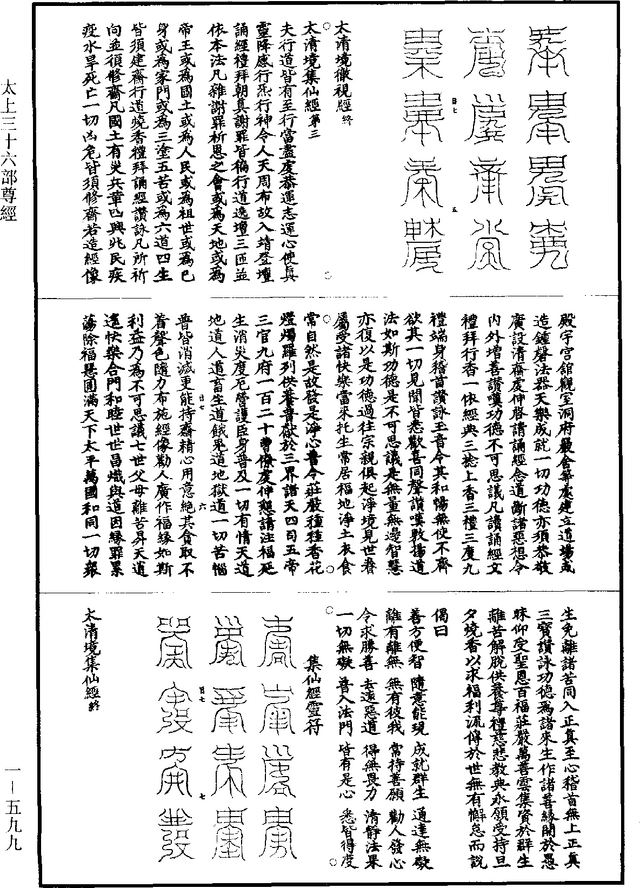 太上三十六部尊經
太清境徹視經終
太清境集仙經第三
夫行道皆有至行當盡虔恭運志運心使真
靈降感行炁行神令人天周布故入靖登壇
誦經禮拜朝真謝罪皆稱行道逸壇三匝並
依本法凡雜謝罪祈恩之會或為天地或為
帝王或為國土或為人民或為祖世或為己
身或為家門或為三塗五苦或為六道四生
皆須建齋行道燒香禮拜誦經讚詠凡所祈
向並須修齋凡國土有災兵革凶與兆民疾
疫水旱死亡一切凶危皆須修齋若造經像
殿宇宮館觀室洞府嚴舍華處建立道場或
造鍾磬法器天樂成就一切功德亦須恭敬
廣設清齋虔伸啓請誦經念道斷諸惡想令
內外增善讚嘆功德不可思議凡讚誦經文
禮拜行香一依經典三捻上香三禮三度九
禮端身稽首讚詠玉音令其和暢無使不齊
欲其一切見聞皆悉歡喜同聲讚嘆敷揚道
法如斯功德是不可思議是無量無邊智慧
亦復以是功德過往宗親俱起淨境見世眷
屬受諸快樂當來托生常居福地淨土衣食
常自然是故發是淨心普令莊嚴種種香花
燈燭羅列供養音獻於三界諸天四司五帝
三官九府一百二十曹僚虔伸懇請注福延
生消災度厄營護臣身普及一切有情天道
地道人道畜生道餓鬼道地獄道一切苦惱
普皆消滅更能持齋精心用意絕其貪取不
著聲色隨力布施經像勸人廣作福緣如斯
利益乃為不可思議一世父母離苦昇天逍
遙快樂合門和睦世世昌熾與道因緣罪累
蕩除福慧圓滿天下太平萬國和同一切衆
生免離諸苦同入正真至心稽首無上正真
三寶讚詠功德為諸來生作諸善緣開於愚
昧仰受聖恩百福莊嚴萬善雲集資於群生
離苦解脫供養尊禮慈悲教典永願受持旦
夕燒香以求福利流傳於世無有懈怠而說
偈曰
善方便智 隨意能現 成就群生 通達無礙
離有離無 無有彼我 常待善願 勸人發心
令求勝喜 去逺惡道 得無畏力 清靜法果
一切無礙 普入法門 皆有是心 悉皆得度
集仙經靈符
太清境集仙經終
一－五九九